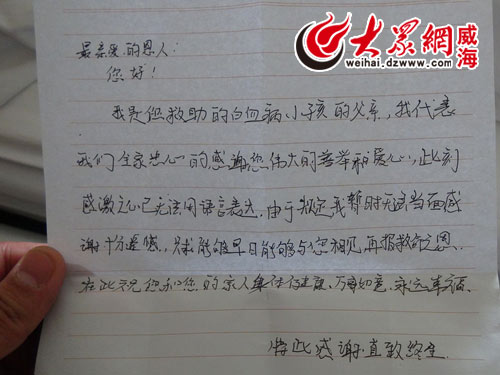 大眾網 威海
weihai.dzwww.com
最亲爱的恩人:
您好!
我是您救助的白血病小孩的父亲,我代表
我们全家忠心的感谢您伟大的善举和爱心,此刻
感激之心已无法用语言表达.由于规定我暂时无法当面感
谢十分遗憾.,只求能够早日能够与您相见再报救命之恩.
在此祝您和您的家人身体健康、万事如意、永远幸福.
特此感谢直致终生.